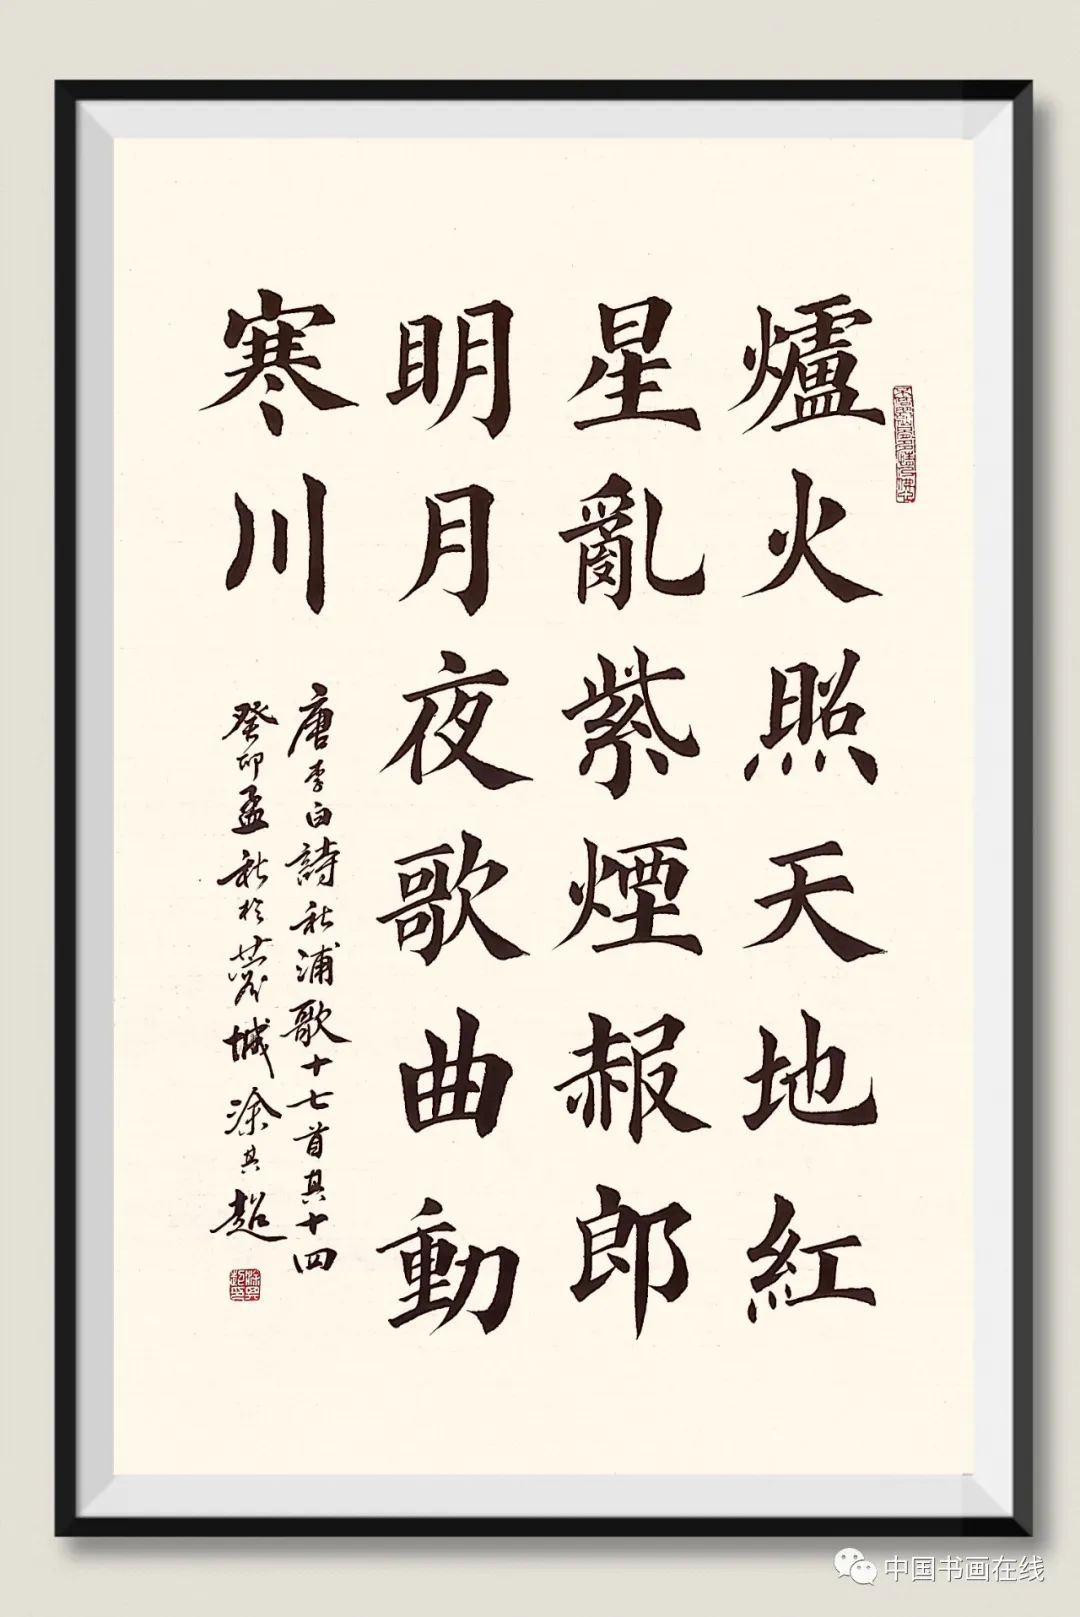 爐火照天地紅
星亂紫煙赧郎
明月夜歌曲動
寒川
唐李白詩秋浦歌十七首其十四
癸卯孟秋於蓉城涂其超
中国书画在线